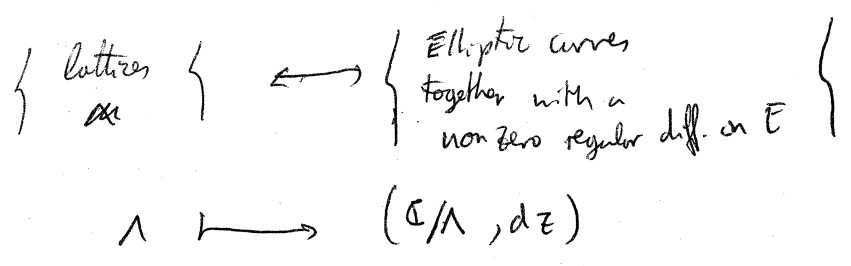 { lattices } ↔ { Elliptic curves
together with a
nonzero regular diff. on E }
Λ ⟼ (ℂ/Λ, dz)